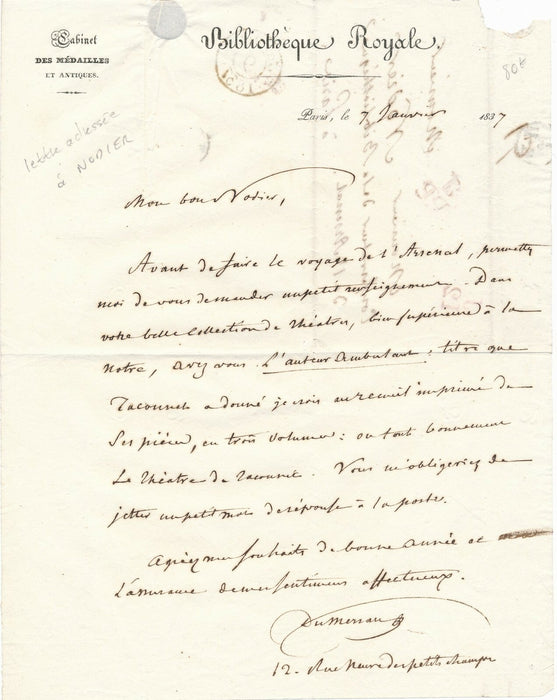 Cabinet
DES MÉDAILLES
ET ANTIQUES.
Bibliothèque Royale.
80f
Paris, le 7 Janvier 1837
lettre adressée
à NODIER
Mon bon Nodier,
Avant de faire le voyage de l'Arsenal, permettez
moi de vous demander un petit renseignement. Dans
votre belle Collection de théatres, bien supérieure à la
notre, avez vous L'auteur Ambulant : titre que
Taconnet a donné je crois au recueil imprimé de
Ses pièces, en trois volumes : ou tout bonnement
Le théatre de Taconnet. Vous m'obligeriez de
jetter un petit mot de réponse à la poste.
Agréez mes souhaits de bonne année et
L'assurance de mes sentimens affectueux.
DuMersan
12. Rue Neuve des petits champs